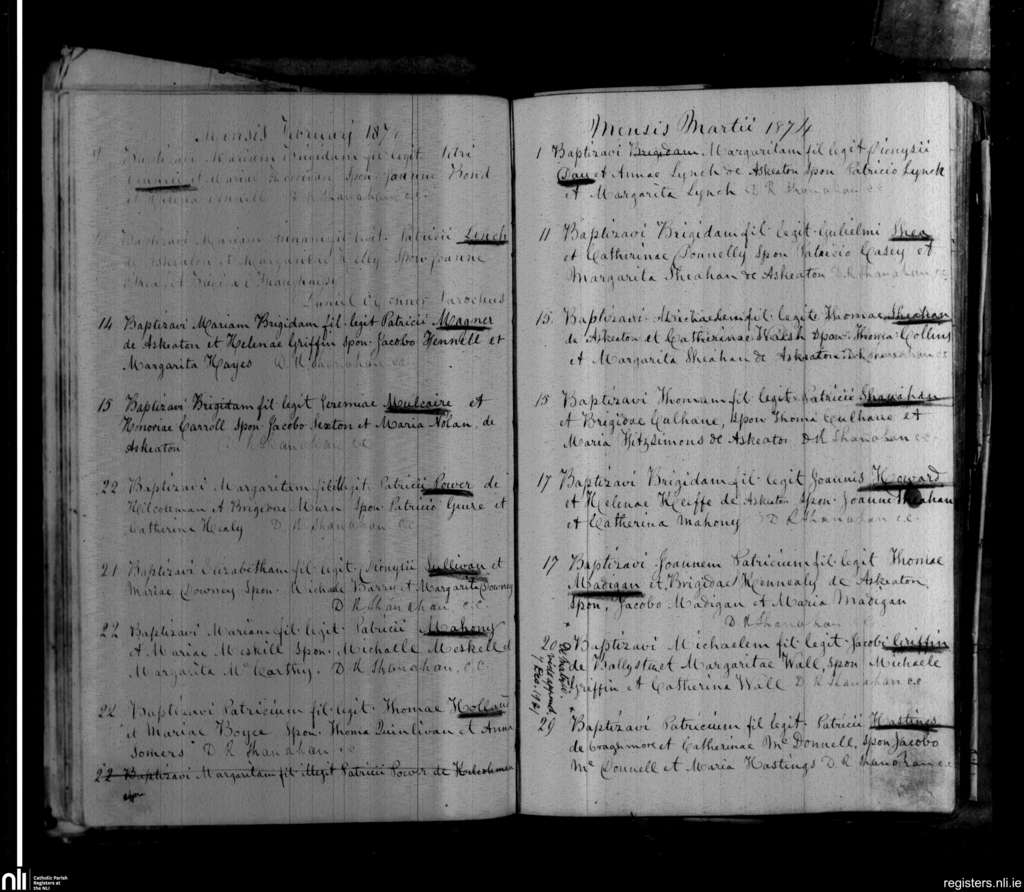 Mensis Februarij 187
Baptizavi Mariam Brigidam fil legit Petri
et Mariae spon Joanne Bond
et D R Shanahan c.c.
Baptizavi Mariam fil legit Patricii Lynch
de Askeaton et Margaritae spon Joanne
Shea et
Daniel Parochus
14 Baptizavi Mariam Brigidam fil legit Patricii Magner
de Askeaton et Helenae Griffin spon Jacobo Hennell et
Margarita Hayes D R Shanahan cc
15 Baptizavi Brigidam fil legit Jeremiae Mulcaire et
Honorae Carroll spon Jacobo Sexton et Maria Nolan, de
Askeaton D R Shanahan cc
22 Baptizavi Margaritam fil legit Patricii Power de
Kilcolman et Brigidae spon Patricio et
Catherina Healy D R Shanahan cc
21 Baptizavi Elizabetham fil legit Dionysii Sullivan et
Mariae Downey spon Michaele Barry et Margarita Downey
D R Shanahan c.c.
22 Baptizavi Mariam fil legit Patricii Mahony
et Mariae Meskill spon Michaele Meskell et
Margarita McCarthy. D R Shanahan. c.c.
22 Baptizavi Patricium fil legit Thomae
et Mariae Boyce spon Thoma Quinlivan et Anna
Somers D R Shanahan cc
22 Baptizavi Margaritam fil illegit Patricii Power de
spon
Mensis Martii 1874
1 Baptizavi Brigidam Margaritam fil legit Dionysii
Day et Annae Lynch de Askeaton spon Patricio Lynch
et Margarita Lynch D R Shanahan cc
11 Baptizavi Brigidam fil legit Gulielmi Shea
et Catherinae Donnelly spon Patricio Casey et
Margarita Sheahan de Askeaton D R Shanahan cc
15 Baptizavi Michaelem fil legit Thomae Sheahan
de Askeaton et Catherinae Walsh spon Thoma Collins
et Margarita Sheahan de Askeaton D R Shanahan cc
15 Baptizavi Thomam fil legit Patricii Shanahan
et Brigidae Culhane, spon Thoma Culhane et
Maria Fitzsimons de Askeaton D R Shanahan cc
17 Baptizavi Brigidam fil legit Joannis Howard
et Helenae Keiffe de Askeaton spon Joanne Sheahan
et Catherina Mahony D R Shanahan c.c.
17 Baptizavi Joannem Patricium fil legit Thomae
Madigan et Brigidae Kennealy de Askeaton
spon, Jacobo Madigan et Maria Madigan
D R Shanahan cc
20 Baptizavi Michaelem fil legit Jacobi Griffin
de Ballysteen et Margaritae Wall, spon Michaele
Griffin et Catherina Wall D R Shanahan cc
29 Baptizavi Patricium fil legit Patricii Hastings
de Cragnmore et Catherinae McDonnell, spon Jacobo
McDonnell et Maria Hastings D R Shanahan cc
nli
Catholic Parish
Registers at
the NLI
registers.nli.ie